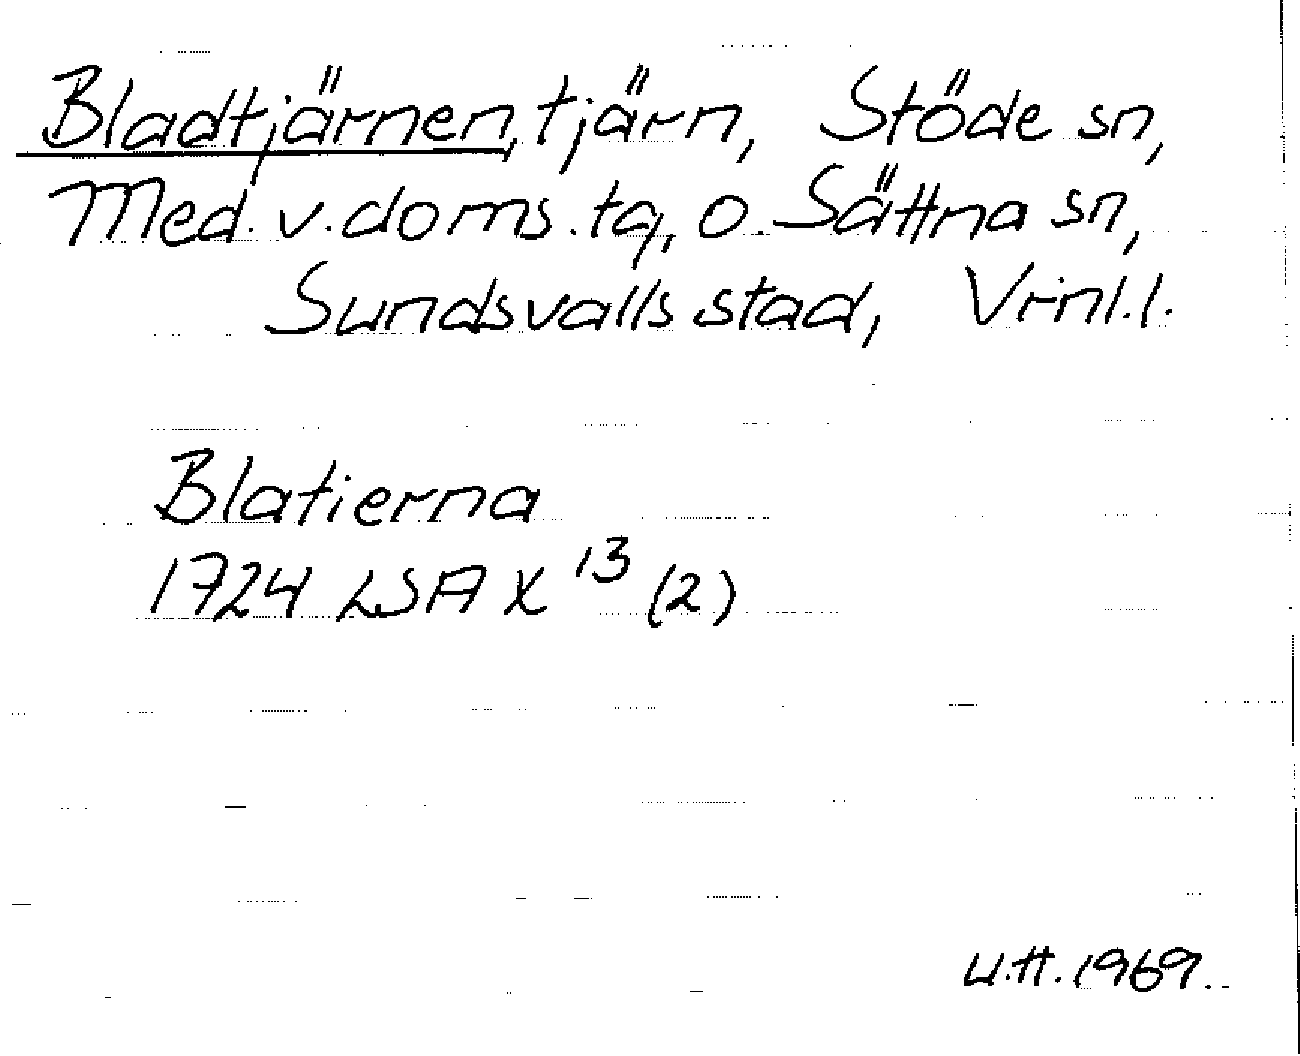 Bladtjärnen, tjärn, Stöde sn,
Med. v. doms. tg, o. Sättna sn,
Sundsvalls stad, Vrinl. l.
Blatierna
1724 LSA X 13 (2)
U.H. 1969.